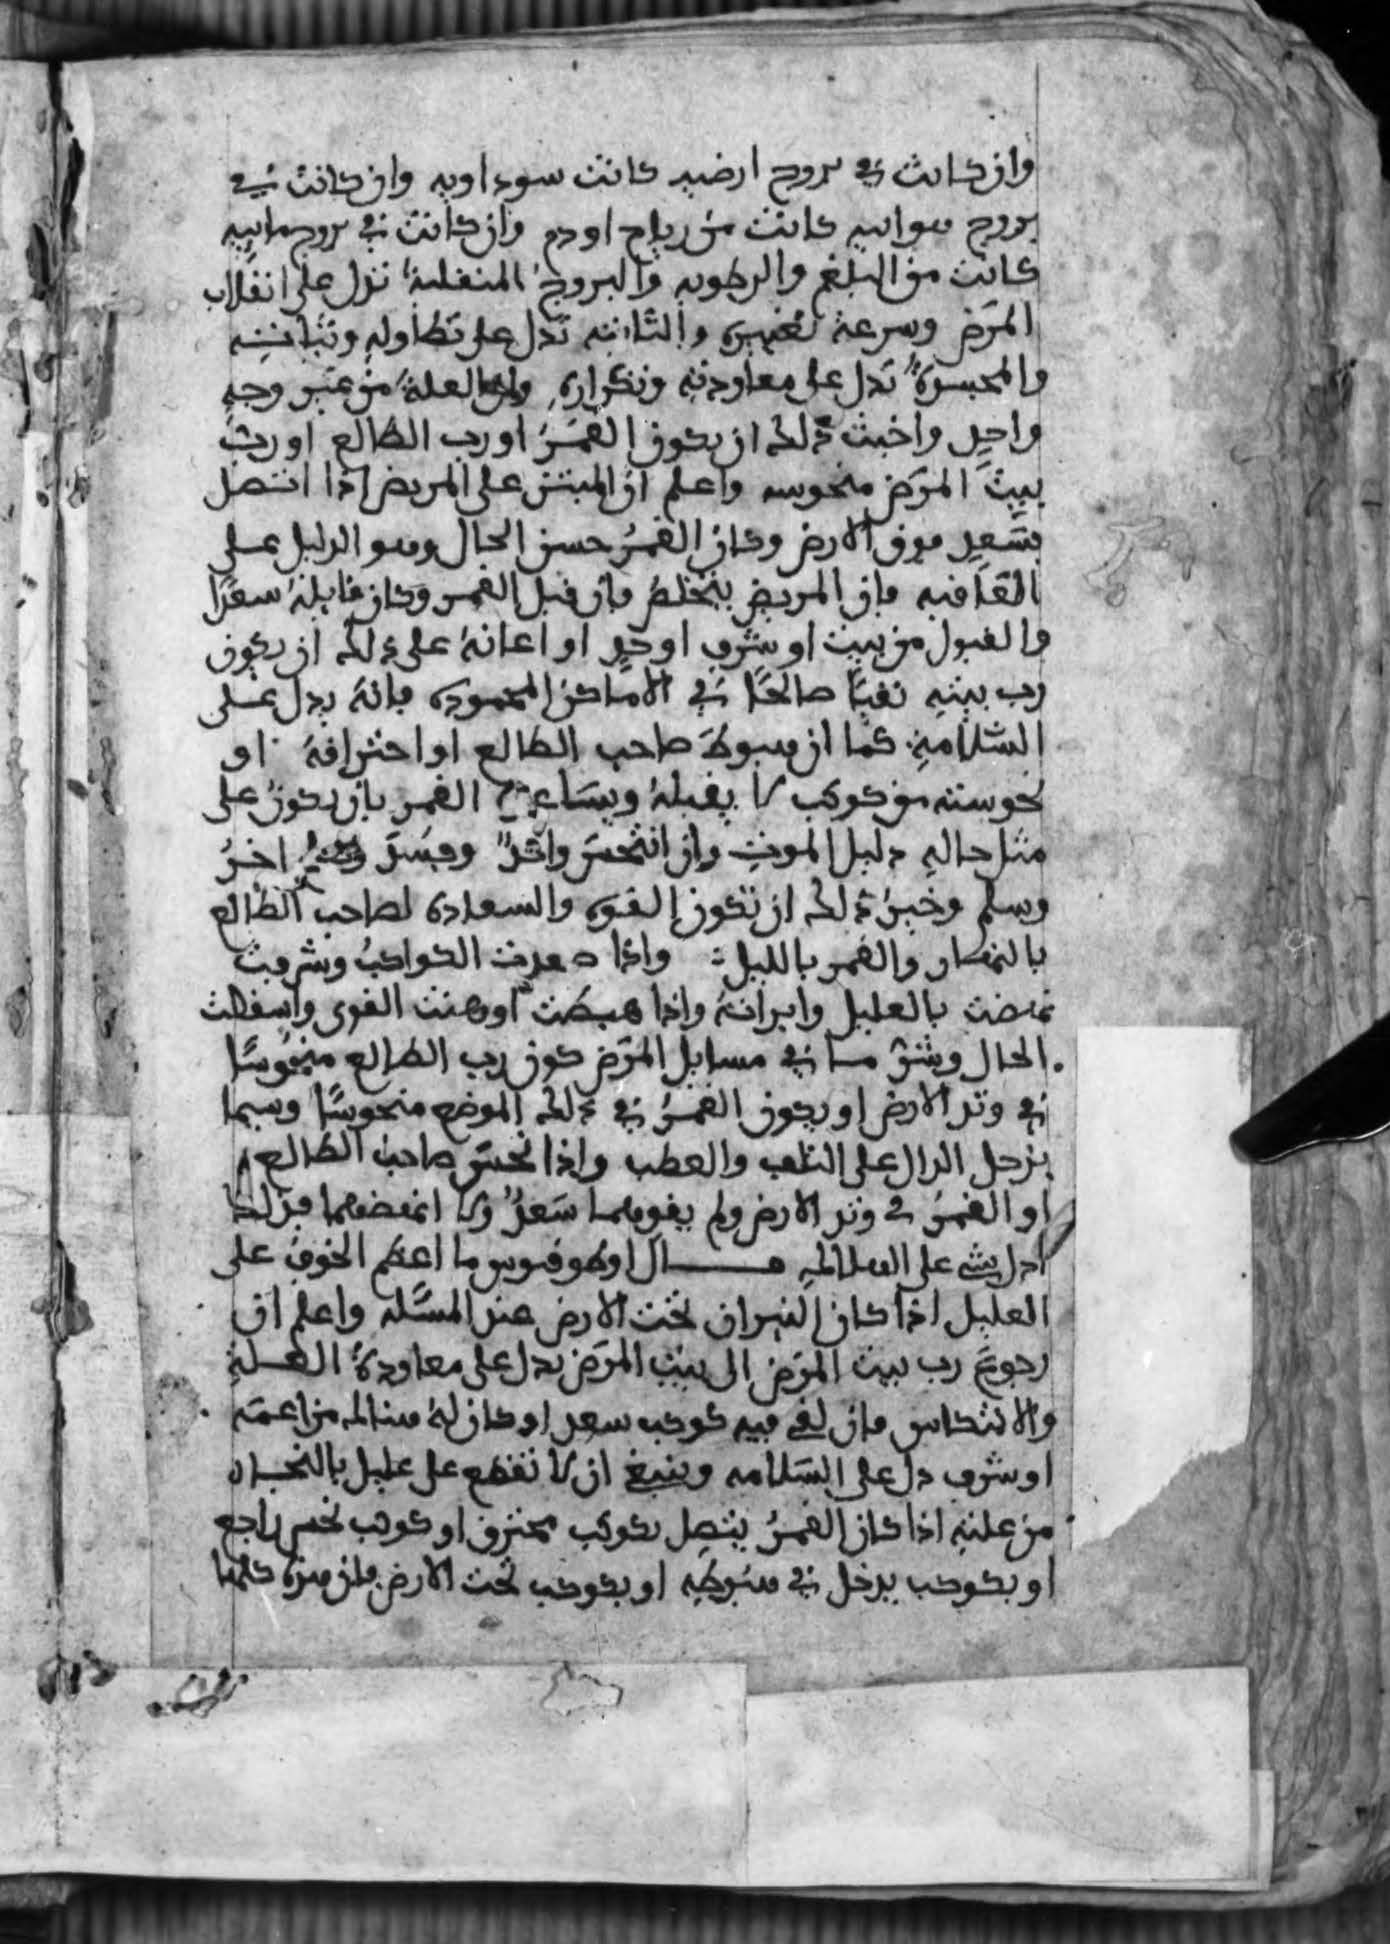 وان كانت في بروج ارضيه كانت سوداويه وان كانت في
بروج هوائيه كانت من رياح او دم وان كانت في بروج مائيه
كانت من البلغم والرطوبه والبروج المنقلبة تدل على انقلاب
المرض وسرعة تغييره والثابته تدل على تطاوله وثباته
والمجسدة تدل على معاودته وتكراره وان العلة من غير وجه
واحد واخبث ذلك ان يكون القمر او رب الطالع او رب
بيت المرض منحوسه واعلم ان المبتز على المريض اذا اتصل
بسعد فوق الارض وكان القمر حسن الحال وهو الدليل على
العافيه فان المريض يتخلص فان قبل القمر وكان قابله سعدًا
والقبول من بيت او شرف او حد او اعانه على ذلك ان يكون
رب بيته نقيًا صالحًا في الاماكن المحموده فانه يدل على
السلامة كما ان هبوط صاحب الطالع او احتراقه او
نحوسته من كوكب لا يقبله ويساعده القمر بان يكون على
مثل حاله دليل الموت وان انتحس واحدٌ وفسد وصلح اخر
وسلم وخير ذلك ان تكون القوه والسعاده لصاحب الطالع
بالنهار والقمر بالليل واذا صعدت الكواكب وشرفت
نهضت بالعليل وابراته واذا هبطت اوهنت القوى واسقطت
الحال وشر ما في مسايل المرض كون رب الطالع منحوسًا
في وتد الارض او يكون القمر في ذلك الموضع منحوسًا وسيما
بزحل الدال على التلف والعطب واذا نحس صاحب الطالع
او القمر في وتد الارض ولم يقومهما سعدٌ ولا انهضهما فذلك
ادل شي على الهلاك قال اوطوقيوس ما اعظم الخوف على
العليل اذا كان النيران تحت الارض عند المسئله واعلم ان
رجوع رب بيت المرض الى بيت المرض يدل على معاودة العلة
والانتكاس فان لقي فيه كوكب سعد او كان له هنالك مزاعمه
او شرف دل على السلامه وينبغي ان لا تقطع على عليل بالنجاه
من علته اذا كان القمر يتصل بكوكب محترق او كوكب نحس راجع
او بكوكب يدخل في هبوطه او بكوكب تحت الارض فان هذه كلها